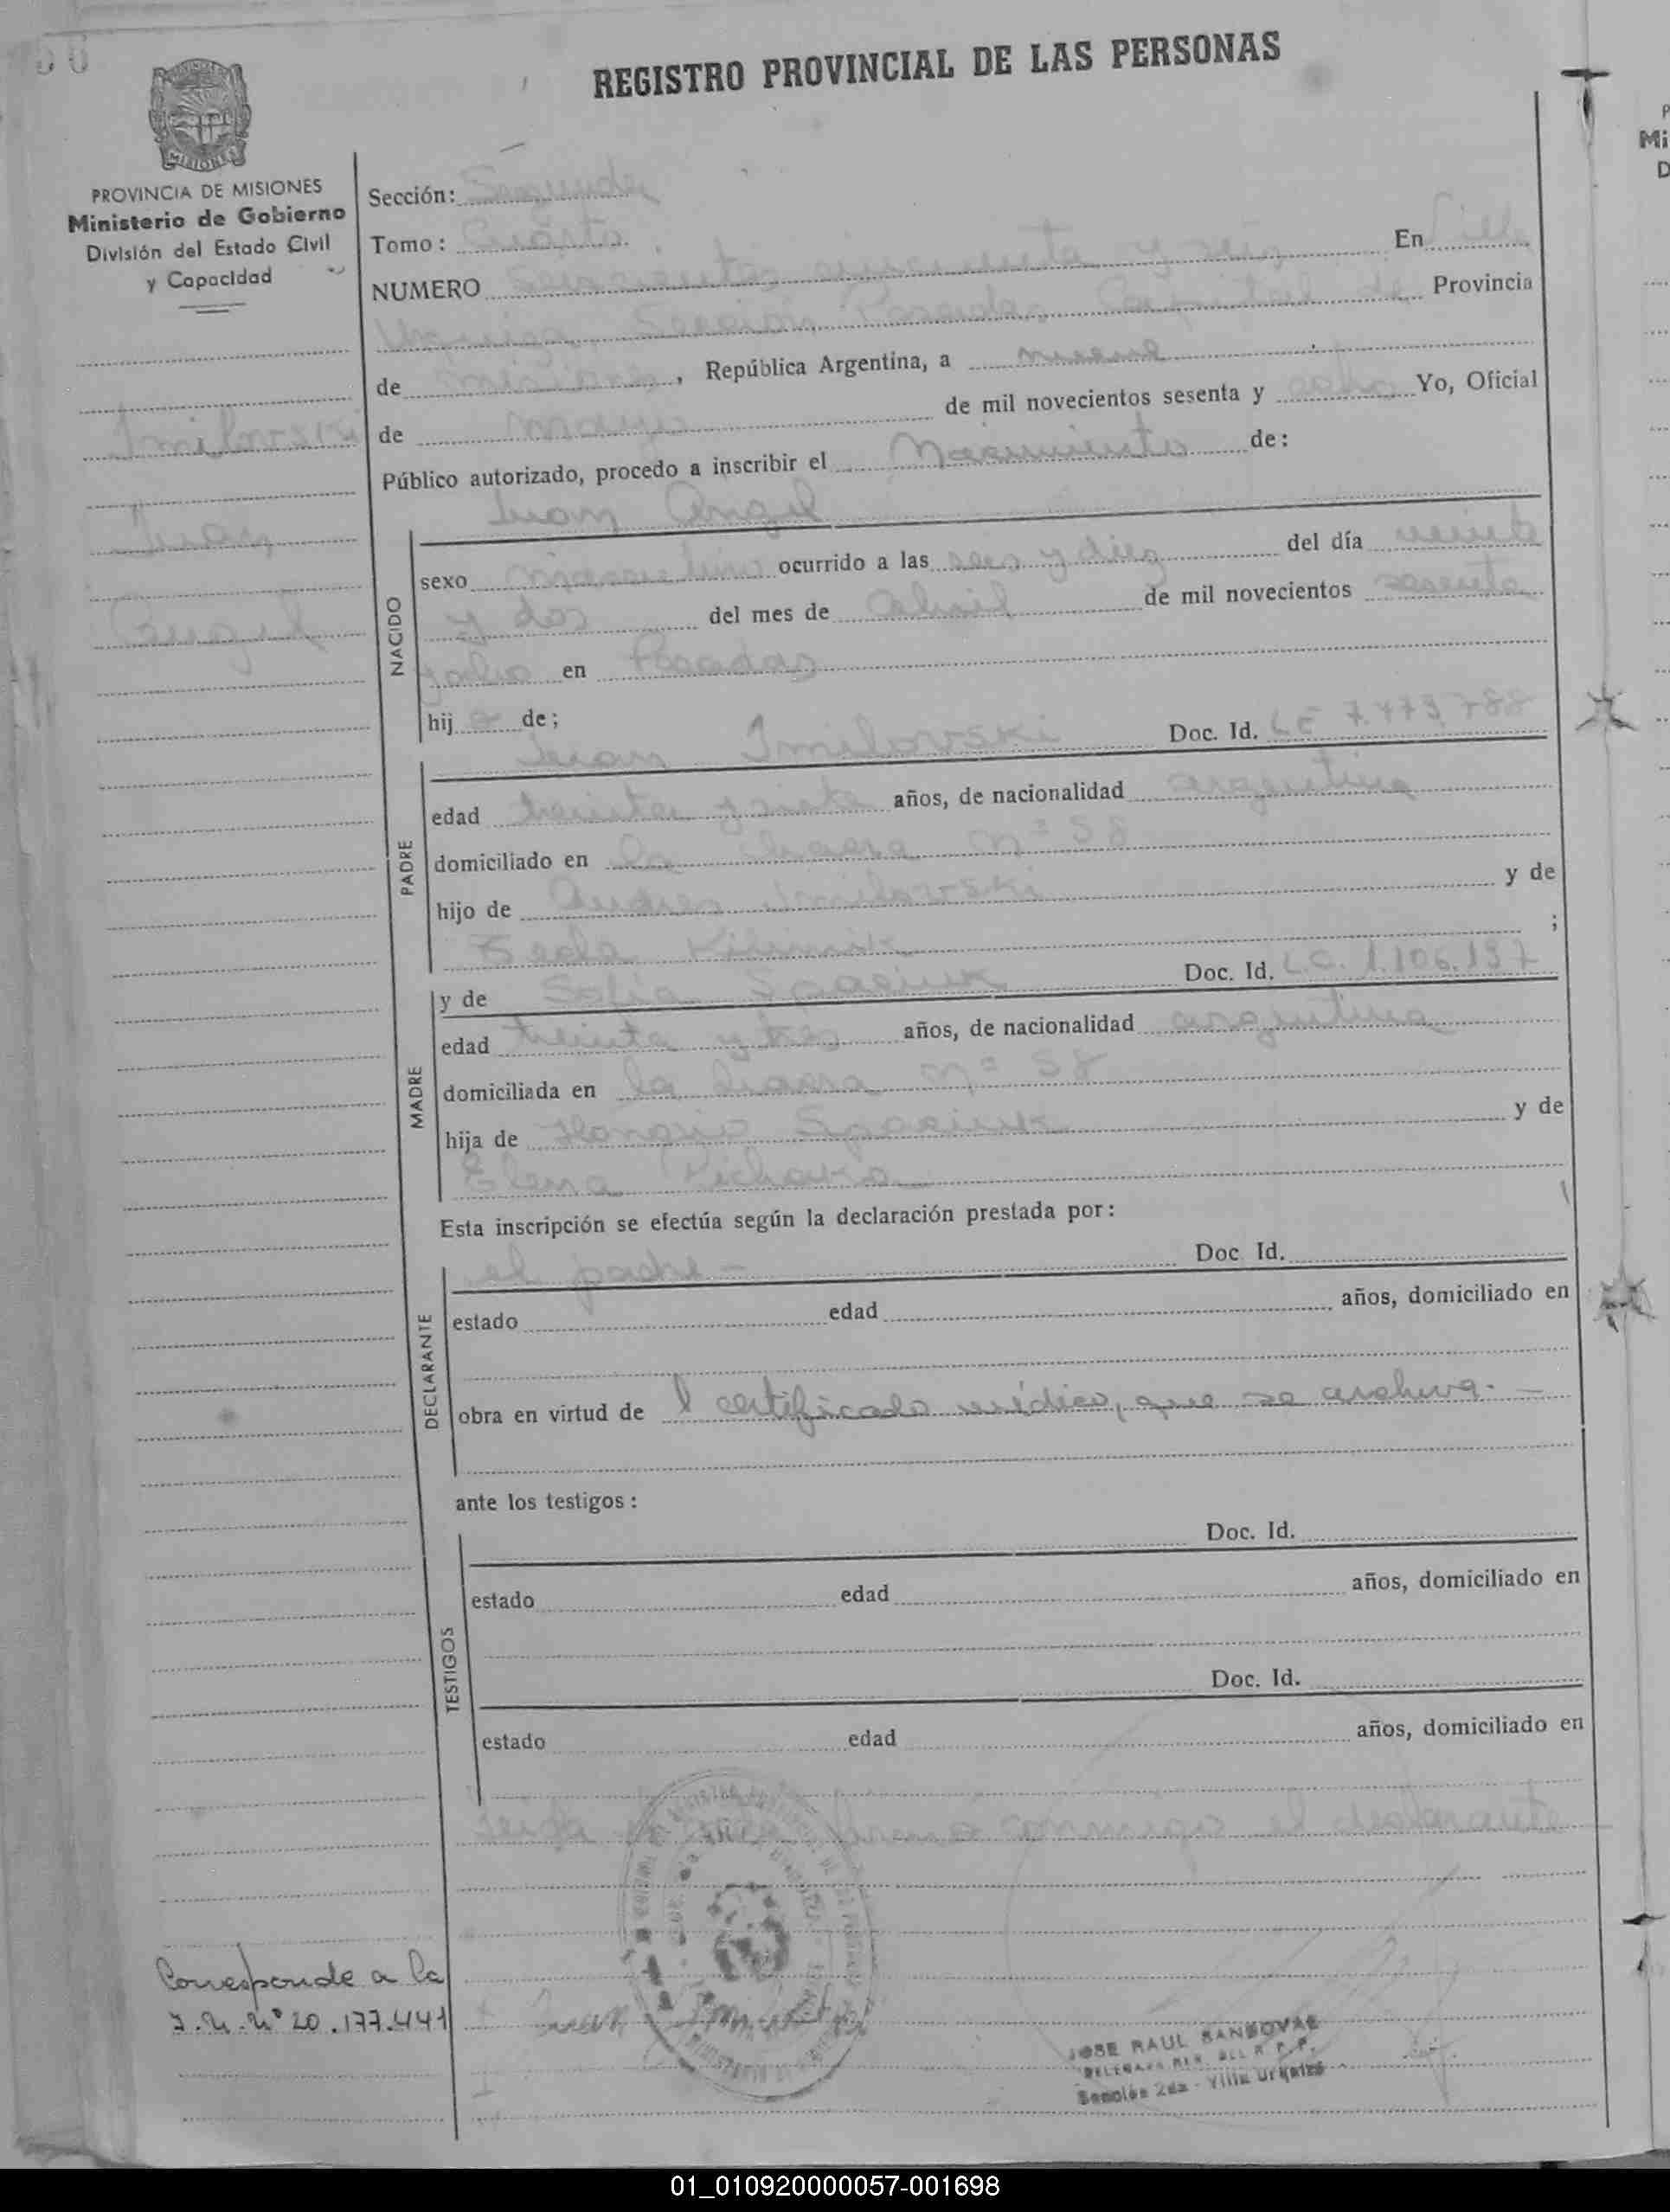 REGISTRO PROVINCIAL DE LAS PERSONAS
MISIONES
PROVINCIA DE MISIONES
Ministerio de Gobierno
División del Estado Civil
y Capacidad
Sección: Segunda
Tomo: Cuarto
NUMERO seiscientos cincuenta y seis En Villa
Urquiza Sección Posadas Capital de Provincia
de Misiones, República Argentina, a nueve
de mayo de mil novecientos sesenta y ocho Yo, Oficial
Público autorizado, procedo a inscribir el Nacimiento de:
Imilovski
Juan
Angel
NACIDO
Juan Angel
sexo masculino ocurrido a las seis y diez del día veinte
y dos del mes de Abril de mil novecientos sesenta
y ocho en Posadas
hij o de;
PADRE
Juan Imilovski Doc. Id. L E 7.473.788
edad treinta y siete años, de nacionalidad argentina
domiciliado en la chacra Nº 58
hijo de Andres Imilovski y de
Tecla ;
MADRE
y de Sofia Spaciuk Doc. Id. L.C. 1.106.137
edad treinta y tres años, de nacionalidad argentina
domiciliada en la chacra Nº 58
hija de Spaciuk y de
Elena
Esta inscripción se efectúa según la declaración prestada por:
DECLARANTE
el padre - Doc Id.
estado edad años, domiciliado en
obra en virtud de l certificado médico, que se archiva. -
ante los testigos:
TESTIGOS
Doc. Id.
estado edad años, domiciliado en
Doc. Id.
estado edad años, domiciliado en
Leida la firmó conmigo el declarante
Corresponde a la
I.N. Nº 20.177.441
Juan
JOSE RAUL SANDOVAL
Sección 2da - Villa Urquiza
01_010920000057-001698